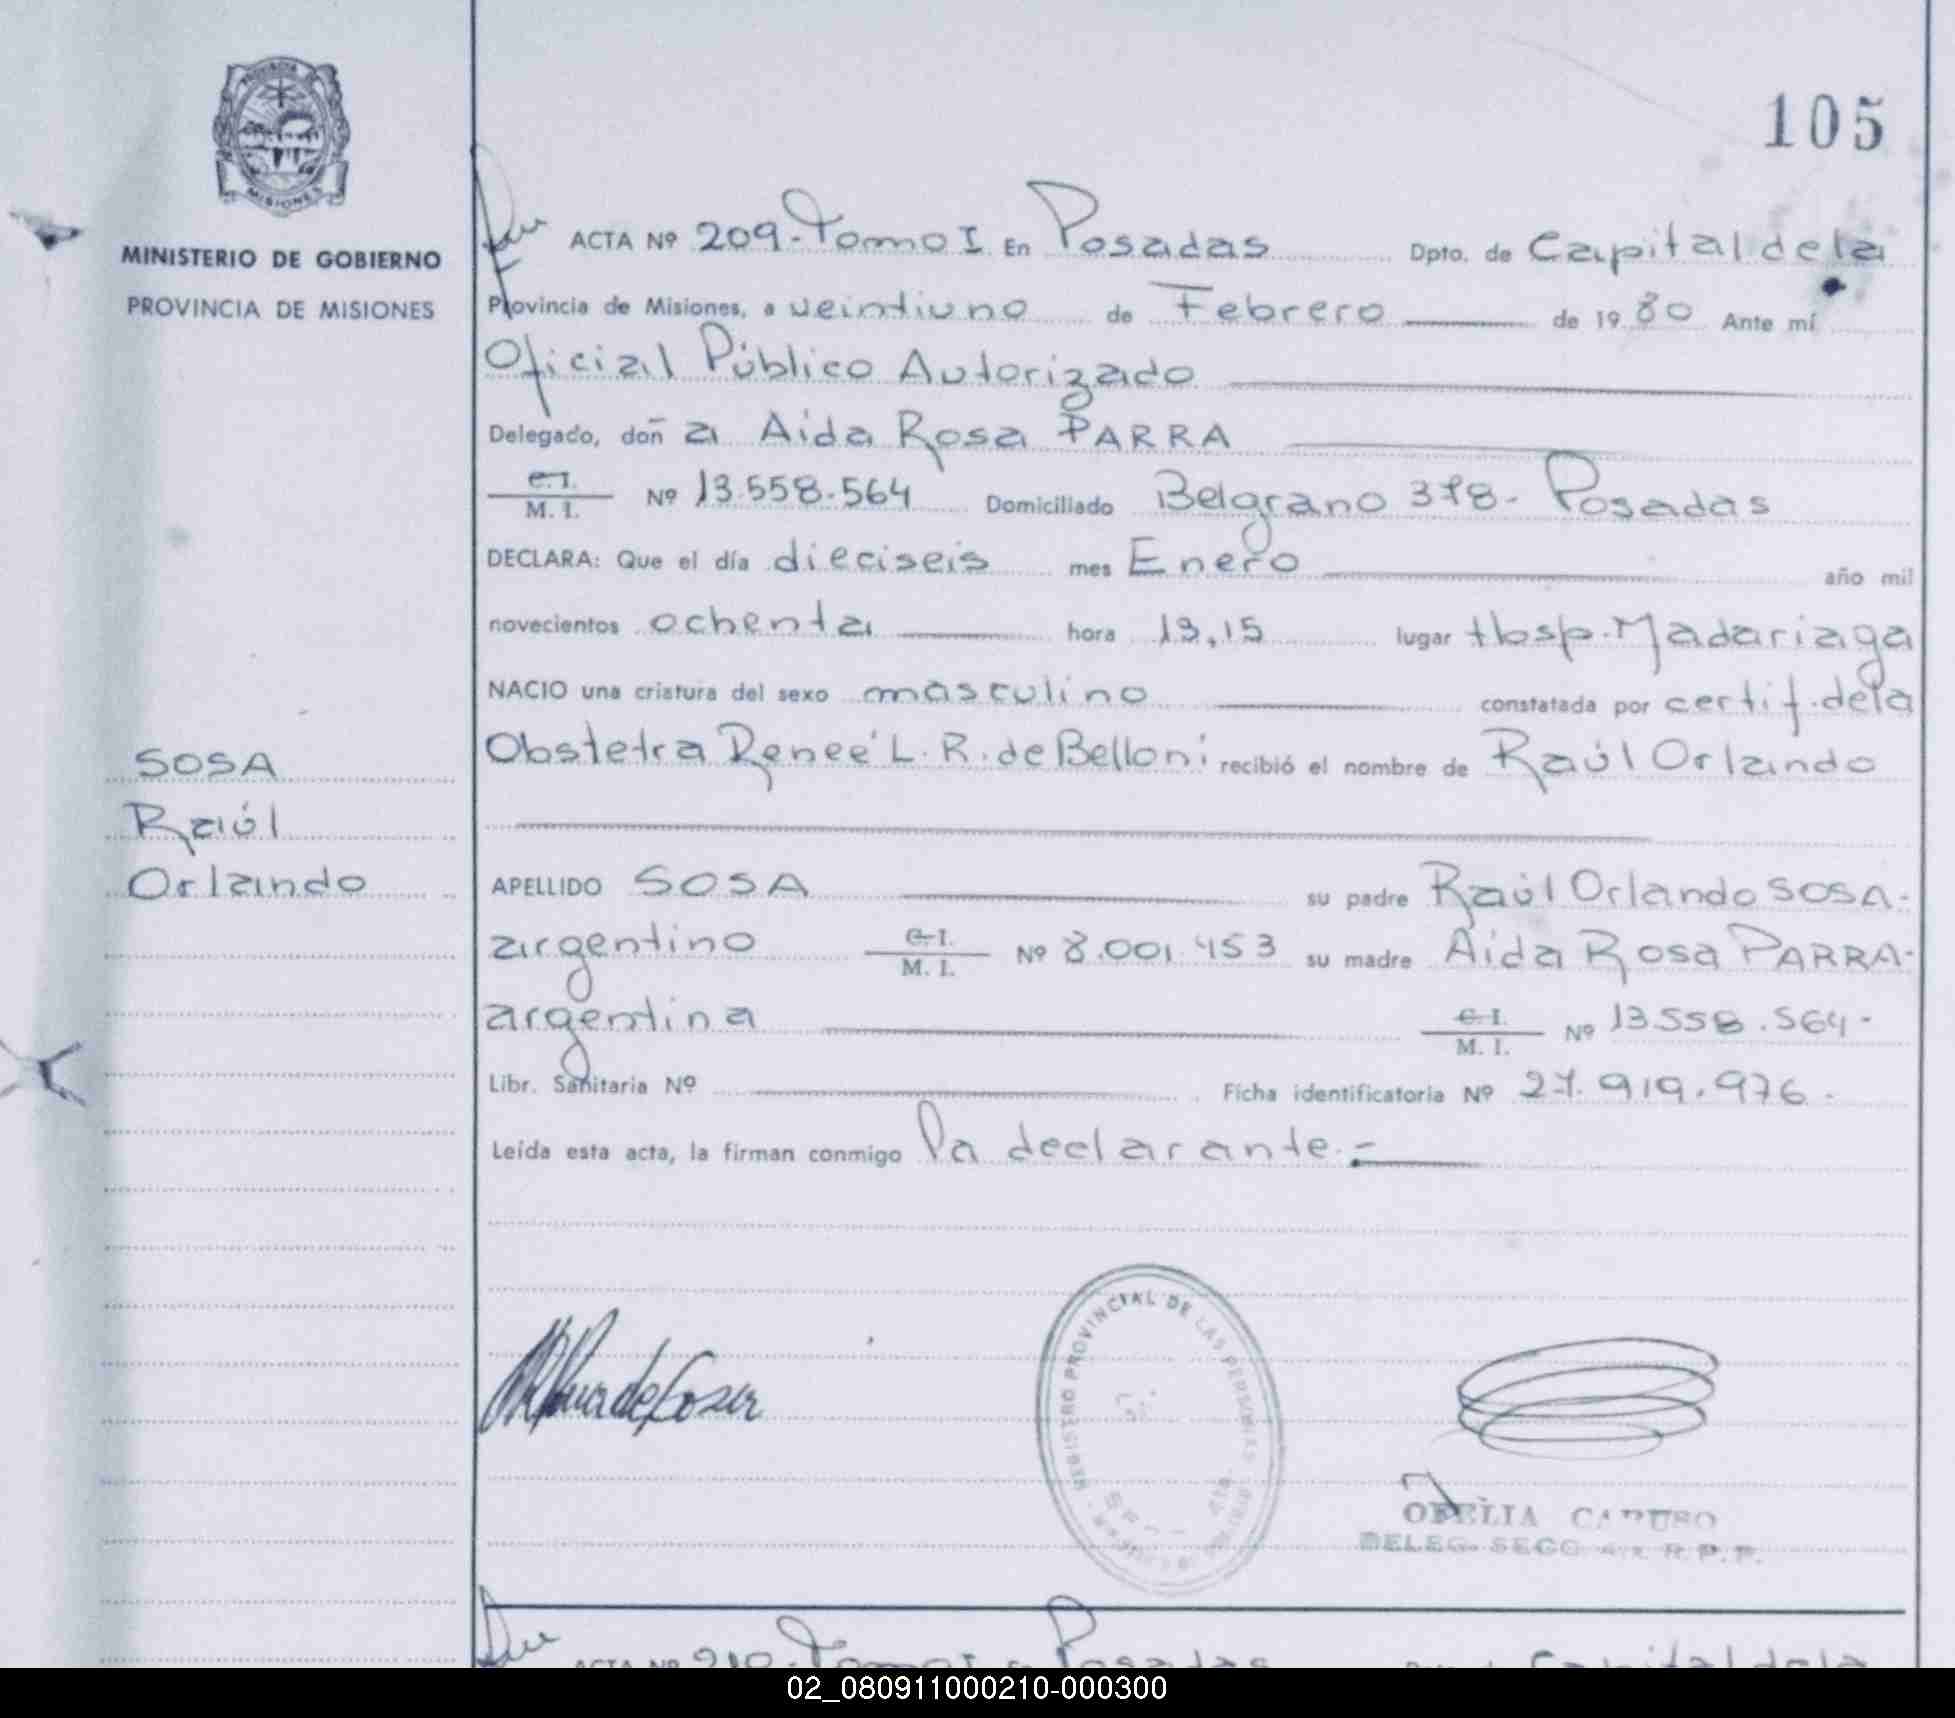 PROVINCIA DE
MISIONES
MINISTERIO DE GOBIERNO
PROVINCIA DE MISIONES
105
ACTA Nº 209-Tomo I En Posadas Dpto. de Capital de la
Provincia de Misiones, a veintiuno de Febrero de 1980 Ante mí
Oficial Público Autorizado
Delegado, doña Aida Rosa PARRA
C.I. / M. I. Nº 13.558.564 Domiciliado Belgrano 378- Posadas
DECLARA: Que el día dieciseis mes Enero año mil
novecientos ochenta hora 13,15 lugar Hosp. Madariaga
NACIO una criatura del sexo masculino constatada por certif. de la
Obstetra Reneé L. R. de Belloni recibió el nombre de Raúl Orlando
SOSA
Raúl
Orlando
APELLIDO SOSA su padre Raúl Orlando SOSA-
argentino C.I. / M. I. Nº 8.001.453 su madre Aida Rosa PARRA-
argentina C.I. / M. I. Nº 13.558.564-
Libr. Sanitaria Nº Ficha identificatoria Nº 27.919.976-
Leída esta acta, la firman conmigo la declarante.-
REGISTRO PROVINCIAL DE LAS PERSONAS
OFELIA CARUSO
DELEG. SECC. R. P. P.
ACTA Nº 210-Tomo I En Posadas Capital de la
02_080911000210-000300